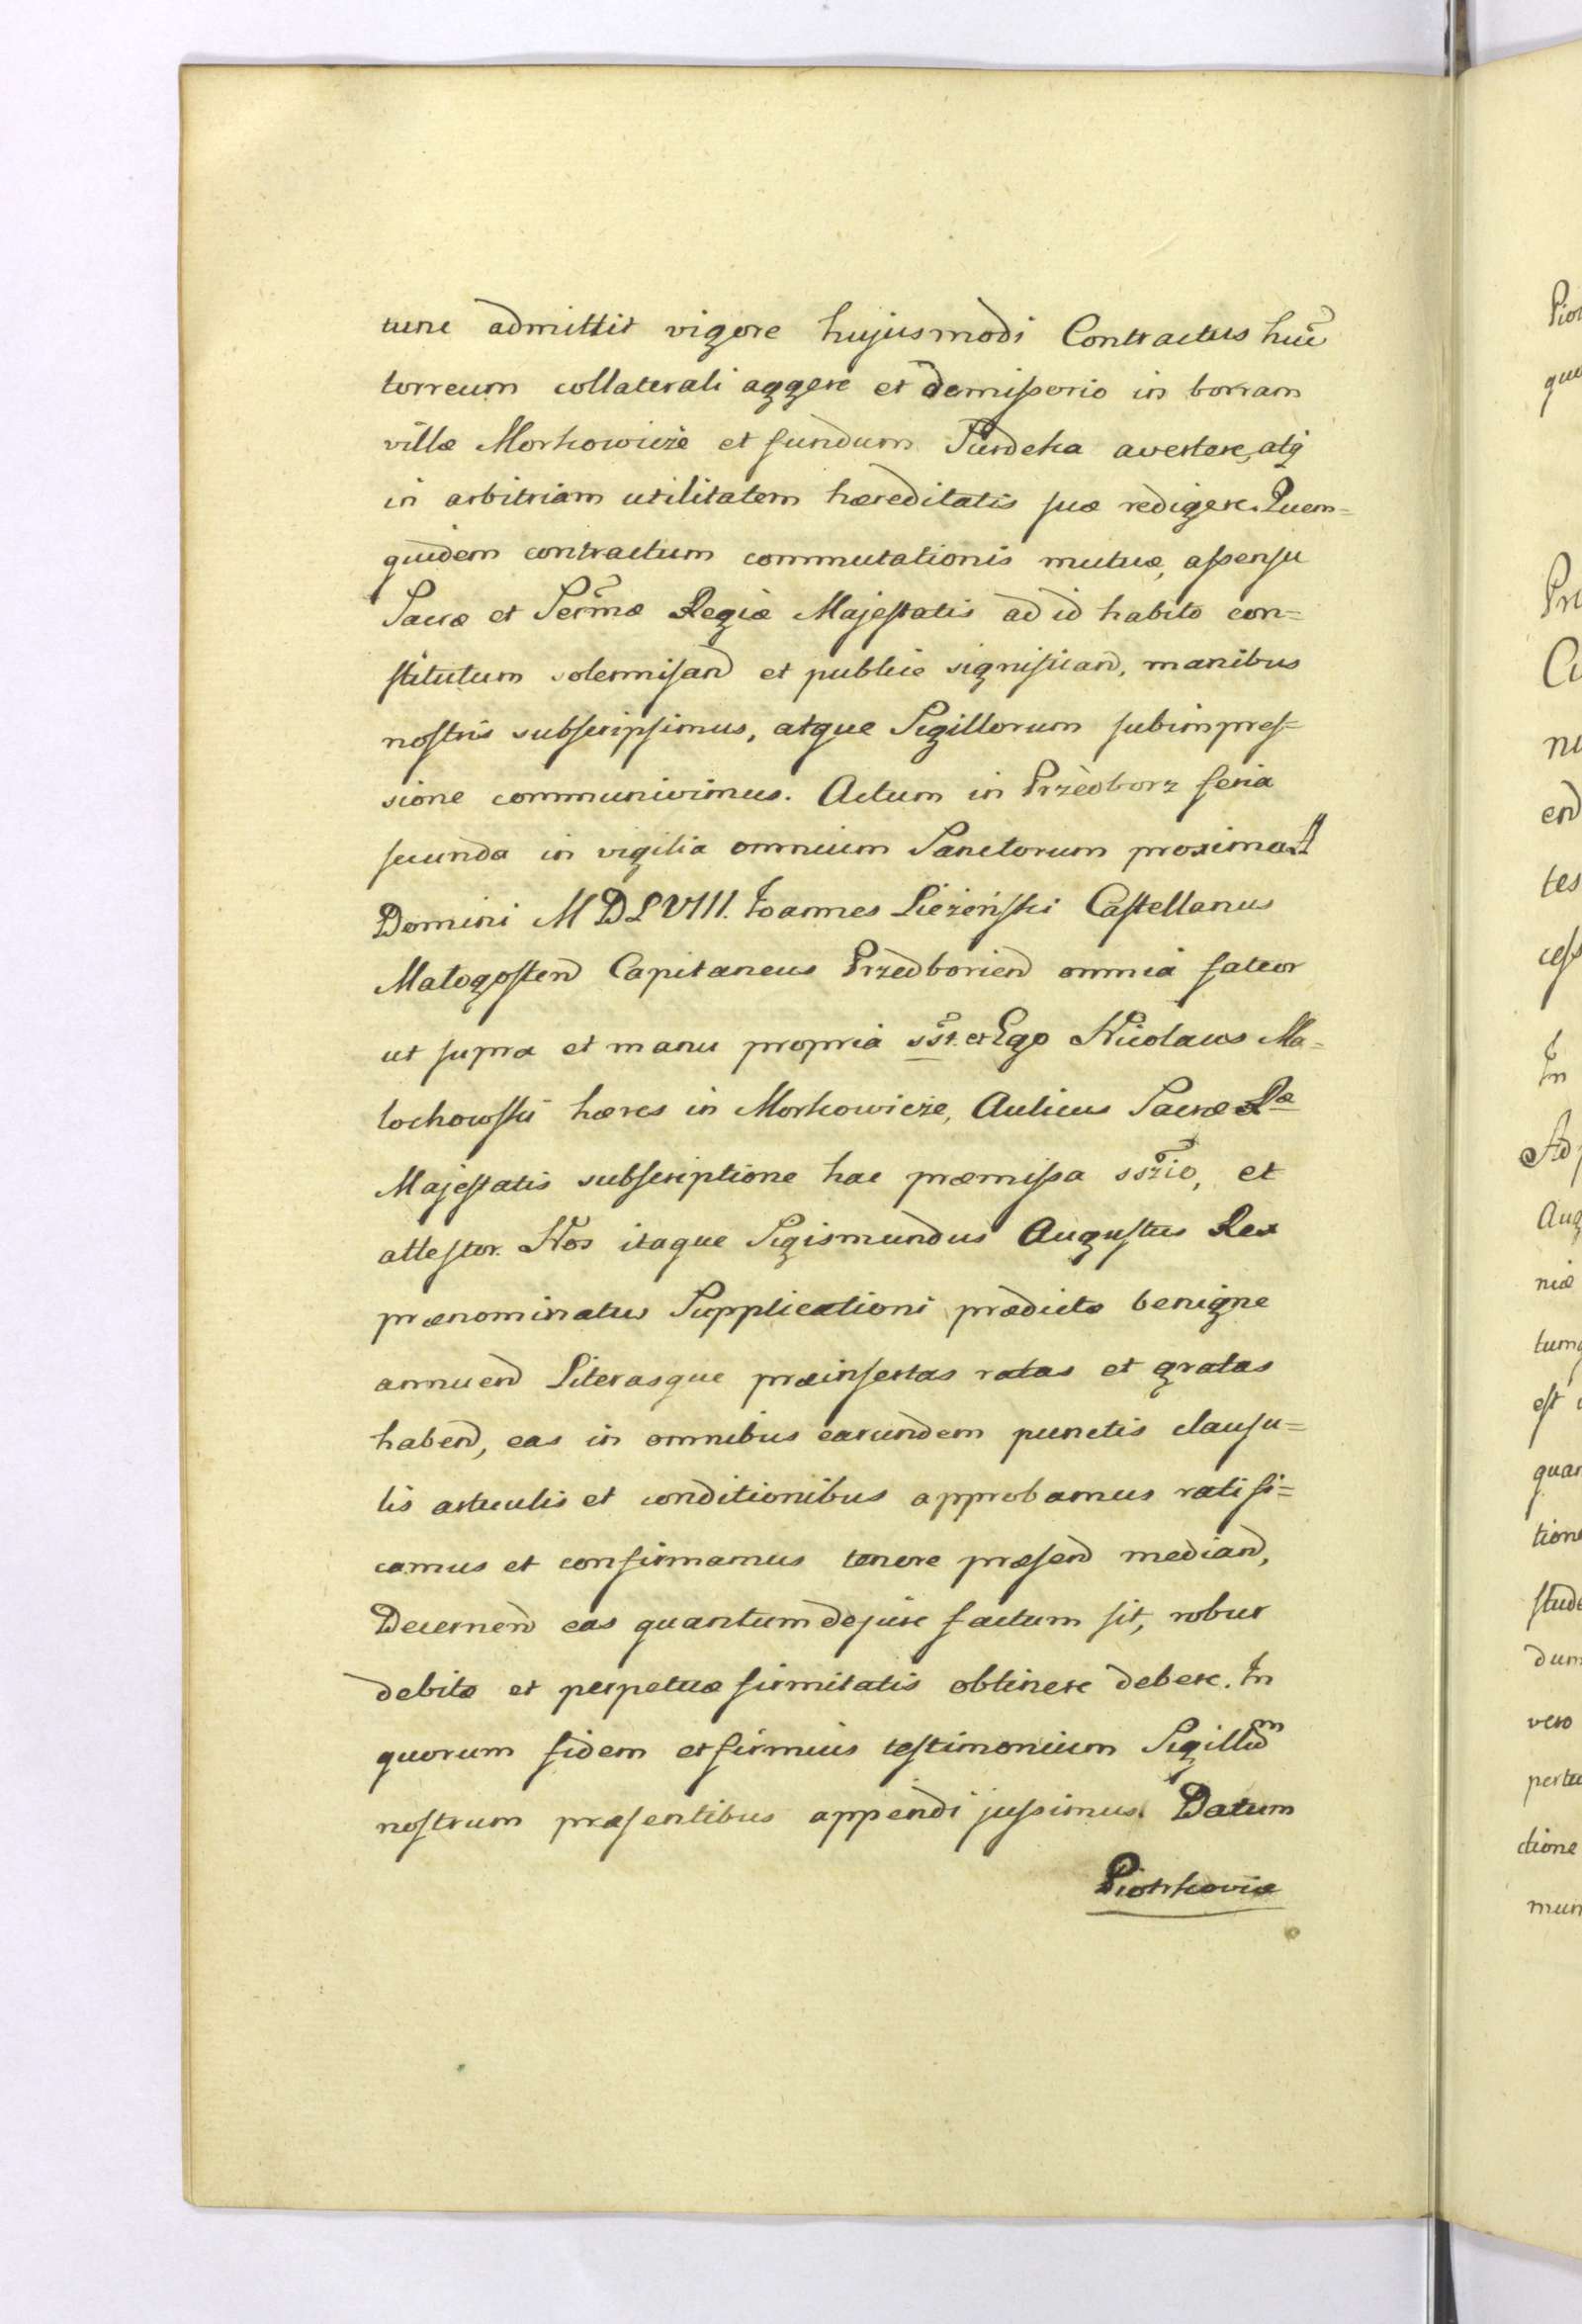 tunc admittit vigore hujusmodi Contractus hunc
torreum collaterali aggere et demisserio in borram
villæ Morkowicze et fundum Purdeka avertere, atq
in arbitriam utilitatem hæreditatis suæ redigere. Quem=
quidem contractum commutationis mutuæ, assensu
Sacræ et Sermæ Regiæ Majestatis ad id habito con=
stitutum solemnisand et publice significand, manibus
nostris subscripsimus, atque Sigillorum subimpres=
sione communivimus. Actum in Przedborz feria
secunda in vigilia omnium Sanctorum proxima A
Domini MDLVIII. Joannes Lieżeński Castellanus
Małogosten Capitaneus Przedborien omnia fateor
ut supra et manu propria sst. et Ego Nicolaus Ma=
lochowski hæres in Morkowicze, Aulicus Sacræ Ræ
Majestatis subscriptione hac præmissa sszio, et
attestor. Nos itaque Sigismundus Augustus Rex
prænominatus Supplicationi prædictæ benigne
annuend Literasque præinsertas ratas et gratas
habend, eas in omnibus earundem punctis clausu=
lis articulis et conditionibus approbamus ratifi=
camus et confirmamus tenore præsend mediand,
Decernend eas quantum de jure factum sit, robur
debitæ et perpetuæ firmitatis obtinere debere. In
quorum fidem et firmius testimonium Sigillum
nostrum præsentibus appendi jussimus. Datum
Piotrkoviæ